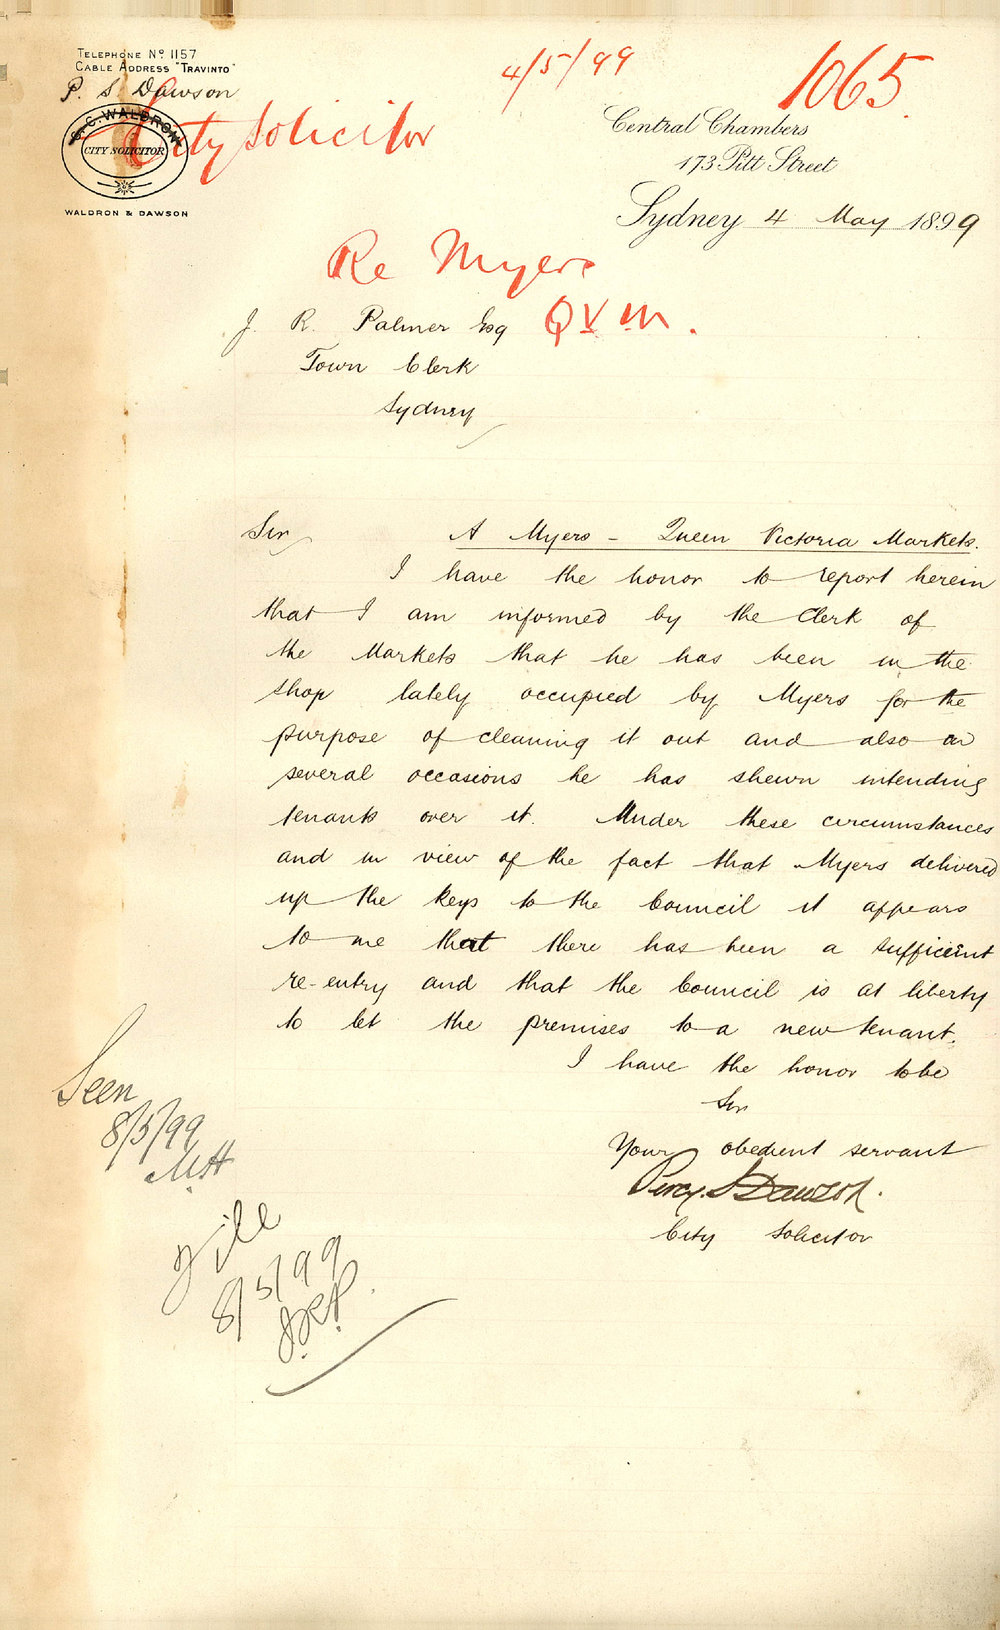 TELEPHONE No 1157
CABLE ADDRESS "TRAVINTO"
P. S. Dawson
G. C. WALDRON
CITY SOLICITOR
WALDRON & DAWSON
City Solicitor
4/5/99
1065
Central Chambers
173 Pitt Street
Sydney 4 May 1899
Re Myers
Q V M.
J. R. Palmer Esq
Town Clerk
Sydney
Sir
A Myers - Queen Victoria Markets.
I have the honor to report herein
that I am informed by the Clerk of
the Markets that he has been in the
shop lately occupied by Myers for the
purpose of cleaning it out and also on
several occasions he has shewn intending
tenants over it. Under these circumstances
and in view of the fact that Myers delivered
up the keys to the Council it appears
to me that there has been a sufficient
re-entry and that the Council is at liberty
to let the premises to a new tenant.
I have the honor to be
Sir
Your obedient servant
Percy S Dawson.
City Solicitor
Seen
8/5/99
MH
File
8/5/99
JRP.